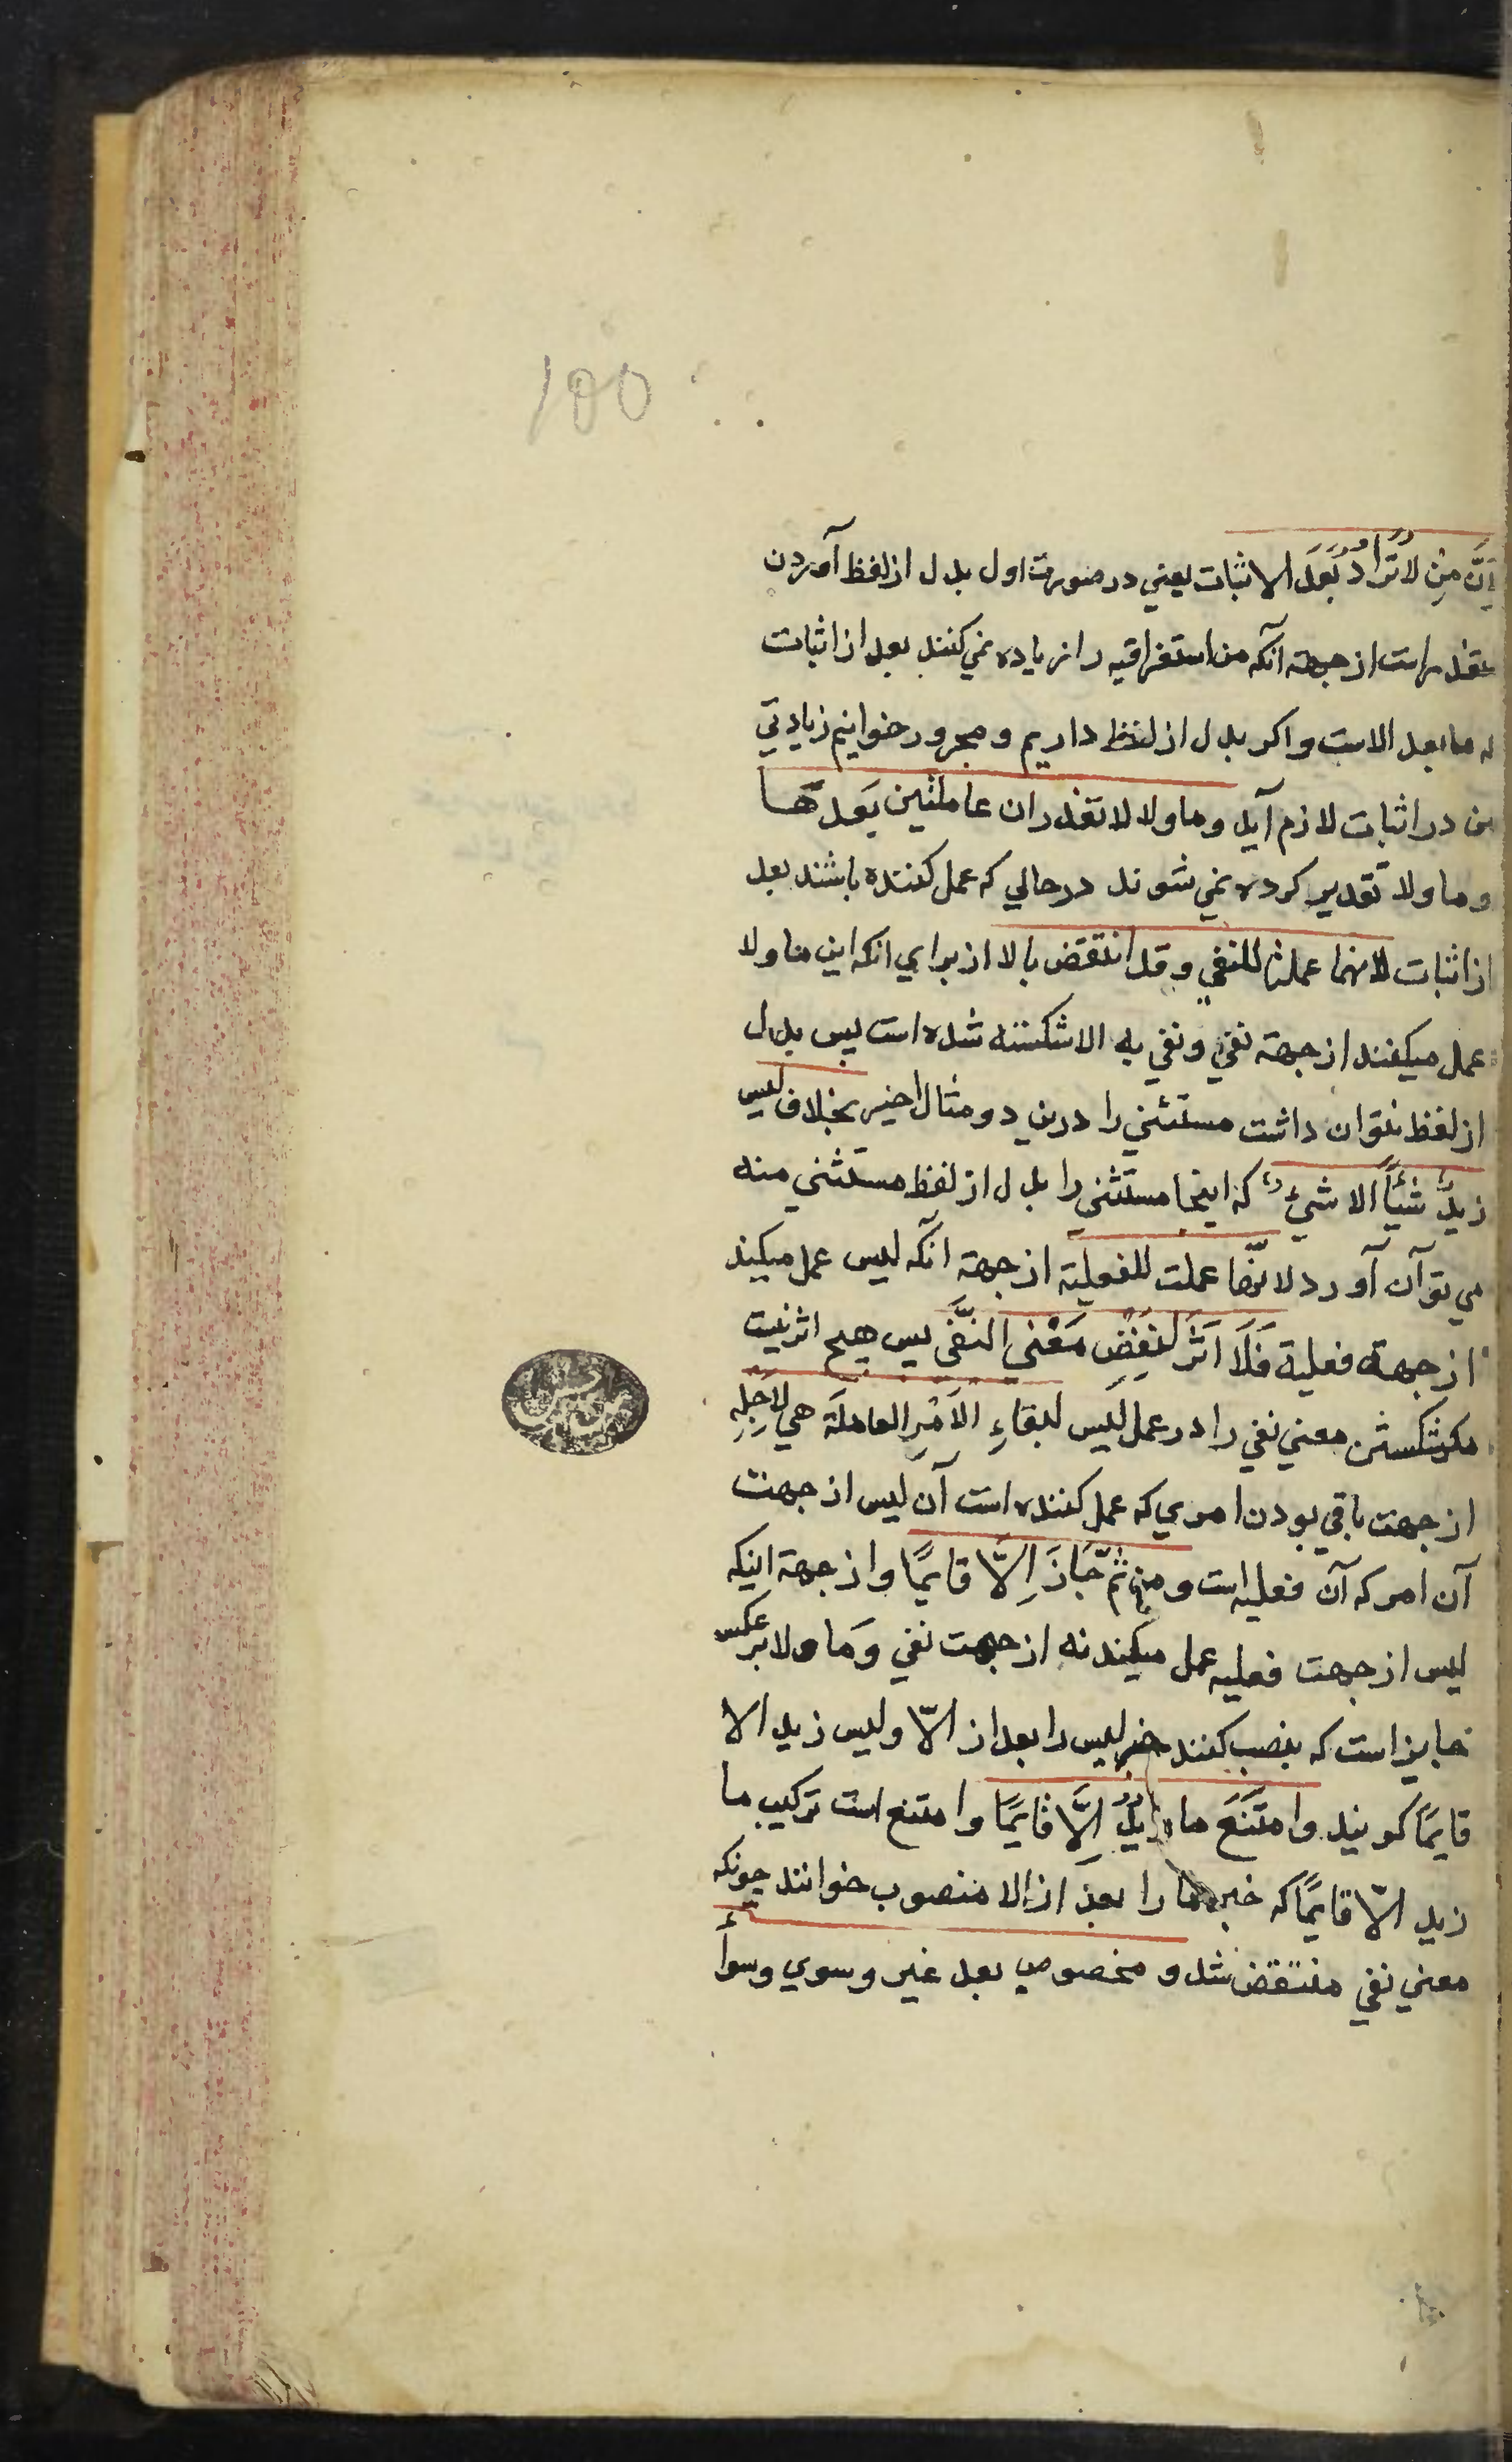 100
اِنَّ مِن لا تُزَادُ بَعدَ الاثبات یعني در صورت اول بدل از لفظ آوردن
متعذر است از جهة آنکه من استغراقیه را زیاده نمي کنند بعد از اثبات
که ما بعد الاست و اکر بدل از لفظ داریم و مجرور خوانیم زیادتي
من در اثبات لازم آید و ما و لا لا تقدران عاملتین بَعدَهَا
و ما و لا تقدیر کرده نمي شوند در حالي که عمل کننده باشند بعد
از اثبات لانهما عملتا للنفي و قد انتقض بالا از براي انکه این ما و لا
عمل میکنند از جهة نفي و نفي به الا شکسته شده است پس بدل
از لفظ نتوان داشت مستثني را درین دو مثال اخیر بخلاف لیس
زیدٌ شیأً الا شيءٌ که اینجا مستثني را بدل از لفظ مستثني منه
مي توآن آورد لانّها عملت للفعلیة از جهة انکه لیس عمل میکند
از جهة فعلیة فَلَا اَثَرَ لِنَقضِ مَعْني النَّفي پس هیچ اثر نیست
مر شکستن معني نفي را در عمل لَیس لبقاءِ الاَمْرِ العاملَة هي لِاَجلِهِ
از جهت باقي بودن امري که عمل کننده است آن لیس از جهت
آن امر که آن فعلیه است و من ثَمّ جَازَ اِلَّا قایمًا و از جهة اینکه
لیس از جهت فعلیه عمل میکند نه از جهت نفي وَما و لا بر عکس
جایز است که بنصب کنند خبر لیس را بعد از الّا و لیس زید الا
قایمًا کویند وامتَنَعَ ما زیدٌ اِلَّا قایمًا و امتنع است ترکیب ما
زید الّا قایمًا که خبر ما را بعد از الا منصوب خوانند چونکه
معني نفي منتقض شد و مخصوص بعد غیر و سوي و سوأ